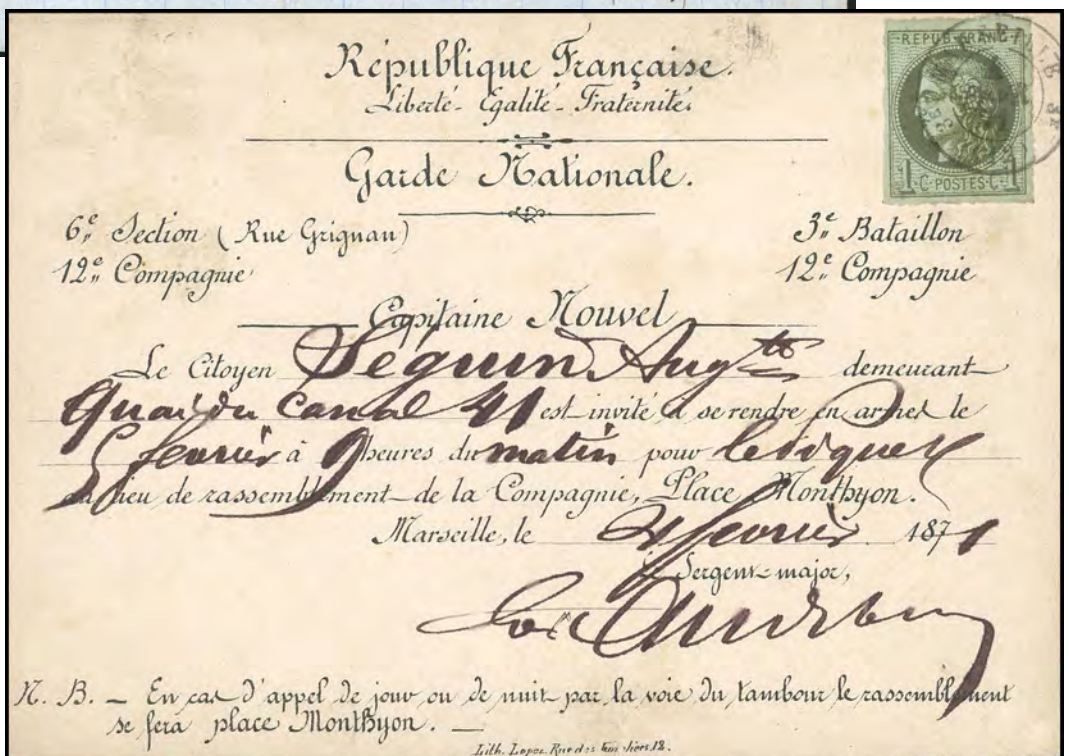 République Française.
Liberté - Egalité - Fraternité.
Garde Nationale.
6e Section (Rue Grignan)
12e Compagnie
3e Bataillon
12e Compagnie
Capitaine Nouvel
Le Citoyen Séguin Augte demeurant
Quai du Canal 41 est invité à se rendre en armes le
5 février à 9 heures du matin pour le piquet
au lieu de rassemblement de la Compagnie, Place Monthyon.
Marseille, le 4 février 1871
Le Sergent-major,
N. B. _ En cas d'appel de jour ou de nuit par la voie du tambour le rassemblement
se fera place Monthyon. _
Lith. Lopez. Rue des 12.
REPUB. FRANC.
1 C. POSTES. C. 1